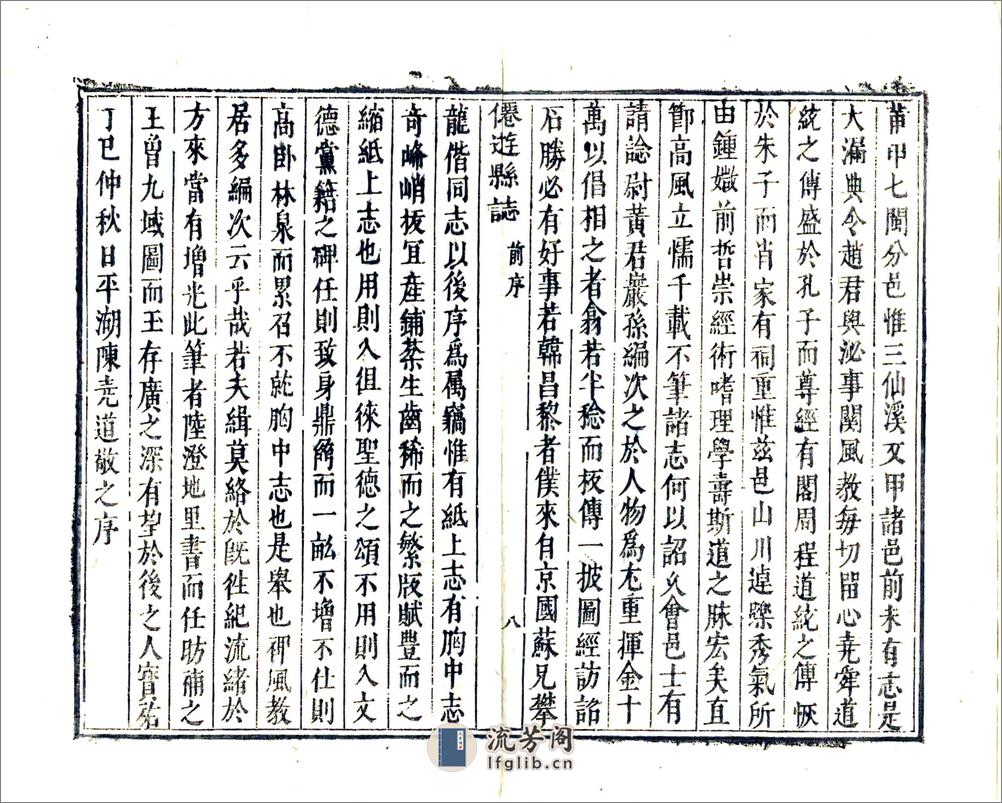 莆甲七閩分邑惟三仙溪又甲諸邑前未有志是
大滿典令趙君與泌事関風教每切留心堯舜道
統之傳盛於孔子而尊經有閣周程道統之傳恢
於朱子而肖家有祠重惟兹邑山川逴躒秀氣所
由鍾媺前哲崇經術嗜理學壽斯道之脉宏矣直
節高風立懦千載不筆諸志何以詔乆會邑士有
請諗尉黃君巖孫編次之於人物爲尤重揮金十
萬以倡相之者翕若半稔而板傳一披圖經訪詺
石勝必有好事若韓昌黎者僕來自京國蘇兄攀
僊遊縣誌 前序 八
龍偕同志以後序爲属竊惟有紙上志有胸中志
奇峰峭拔冝産鋪棻生齒稀而之繁版賦豐而之
縮紙上志也用則入徂徠聖德之頌不用則入文
德黨籍之碑任則致身鼎鼐而一畝不增不仕則
高卧林泉而累召不就胸中志也是舉也禆風教
居多編次云乎哉若夫緝莫絡於旣徃紀流緒於
方來當有増光此筆者陸澄地里書而任昉補之
王曽九域圖而王存廣之深有望於後之人寳祐
丁巳仲秋日平湖陳堯道敬之序
流芳阁
lfglib.cn